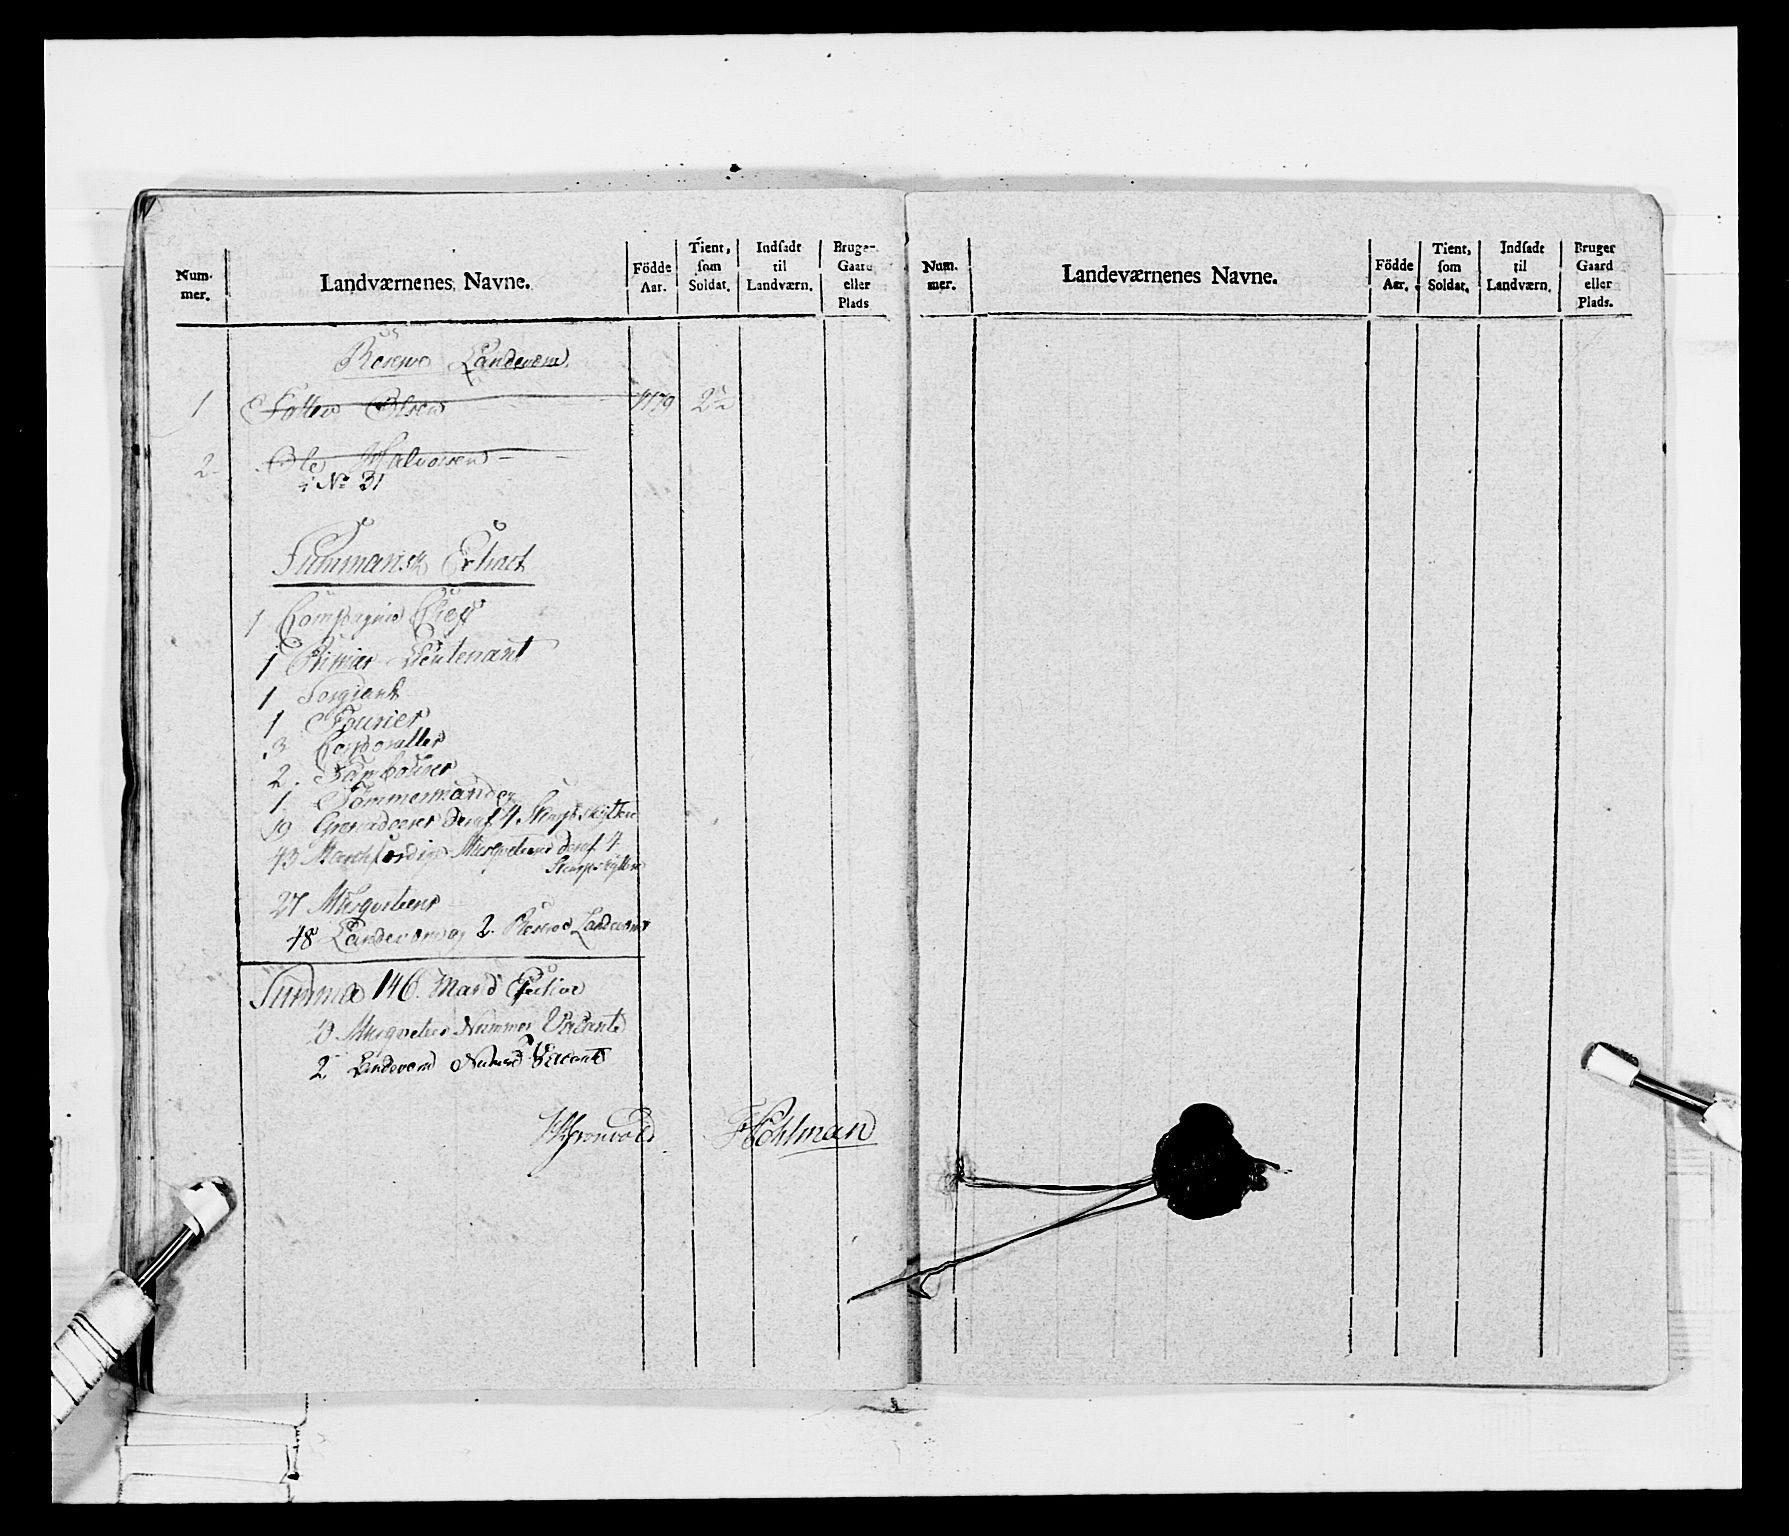 Num-
mer.
Landværnenes Navne.
Födde
Aar.
Tient,
som
Soldat.
Indsadt
til
Landværn.
Bruger
Gaard
eller
Plads
Reserve Landeværn
1 Olsen 1779
2. Ole Halvorsen
i No 31
Summarisk Extract
1 Compagnie Chef
1 Primier Lieutenant
1 Sergiant
1 Fourier
3 Corporaller
2. Tambourer
1. Tömmermænd
19 Grenadeerer deraf 4 Skarpskytter
43 Marchfærdige Musqveterer deraf 4
Skarpskytter
27 Musqveterer
48 Landeværn og 2. Reserve Landeværn
Summa 146. Mand Effective
Musqveteer Nummer Vacante
2 Landeværn Vacante
Grönvold FHohlman
Num.
mer.
Landeværnenes Navne.
Födde
Aar.
Tient,
som
Soldat.
Indsadt
til
Landværn.
Bruger
Gaard
eller
Plads.